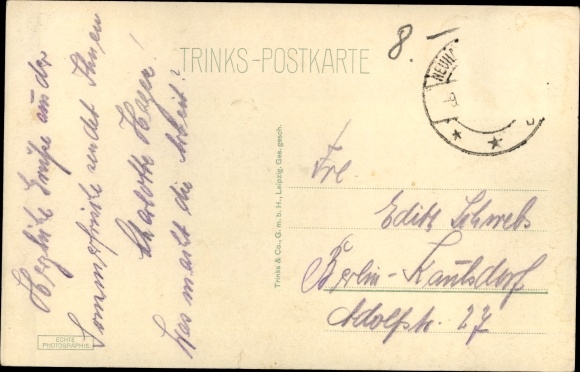 TRINKS-POSTKARTE
8.
Herzliche Grüße aus der
Sommerfrische sendet Ihnen
Charlotte Heyer!
Was macht die Arbeit?
Trinks & Co., G. m. b. H., Leipzig. Ges. gesch.
Frl.
Edith Schwebs
Berlin-Kaulsdorf
Adolfstr. 27
ECHTE
PHOTOGRAPHIE